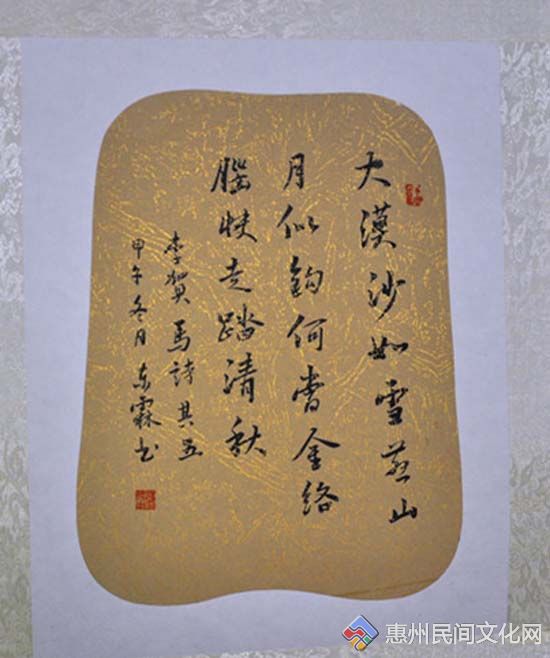 大漠沙如雪燕山
月似鈎何當金络
腦快走踏清秋
李賀馬詩其五
甲午冬月东霖书
惠州民间文化网